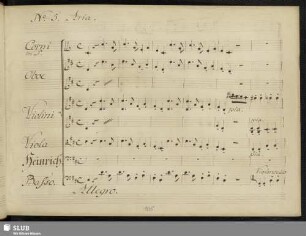 No. 5. Aria.
Corni
Oboe
Violini
Viola
Heinrich
Basso.
Allegro.
SLUB
Wir führen Wissen.